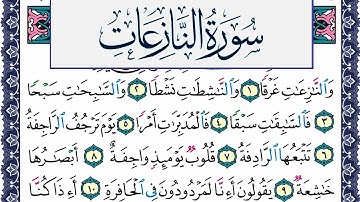 سُورَةُ النَّازِعَاتِ
وَالنَّازِعَاتِ غَرْقًا ١ وَالنَّاشِطَاتِ نَشْطًا ٢ وَالسَّابِحَاتِ سَبْحًا
٣ فَالسَّابِقَاتِ سَبْقًا ٤ فَالْمُدَبِّرَاتِ أَمْرًا ٥ يَوْمَ تَرْجُفُ الرَّاجِفَةُ
٦ تَتْبَعُهَا الرَّادِفَةُ ٧ قُلُوبٌ يَوْمَئِذٍ وَاجِفَةٌ ٨ أَبْصَارُهَا
خَاشِعَةٌ ٩ يَقُولُونَ أَءِنَّا لَمَرْدُودُونَ فِي الْحَافِرَةِ ١٠ أَءِذَا كُنَّا